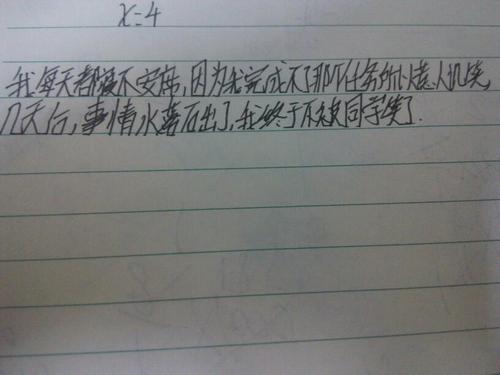 x=4
我每天都寝不安席,因为我完成不了那个任务所以惹人讥笑,
几天后,事情水落石出了,我终于不被同学笑了.